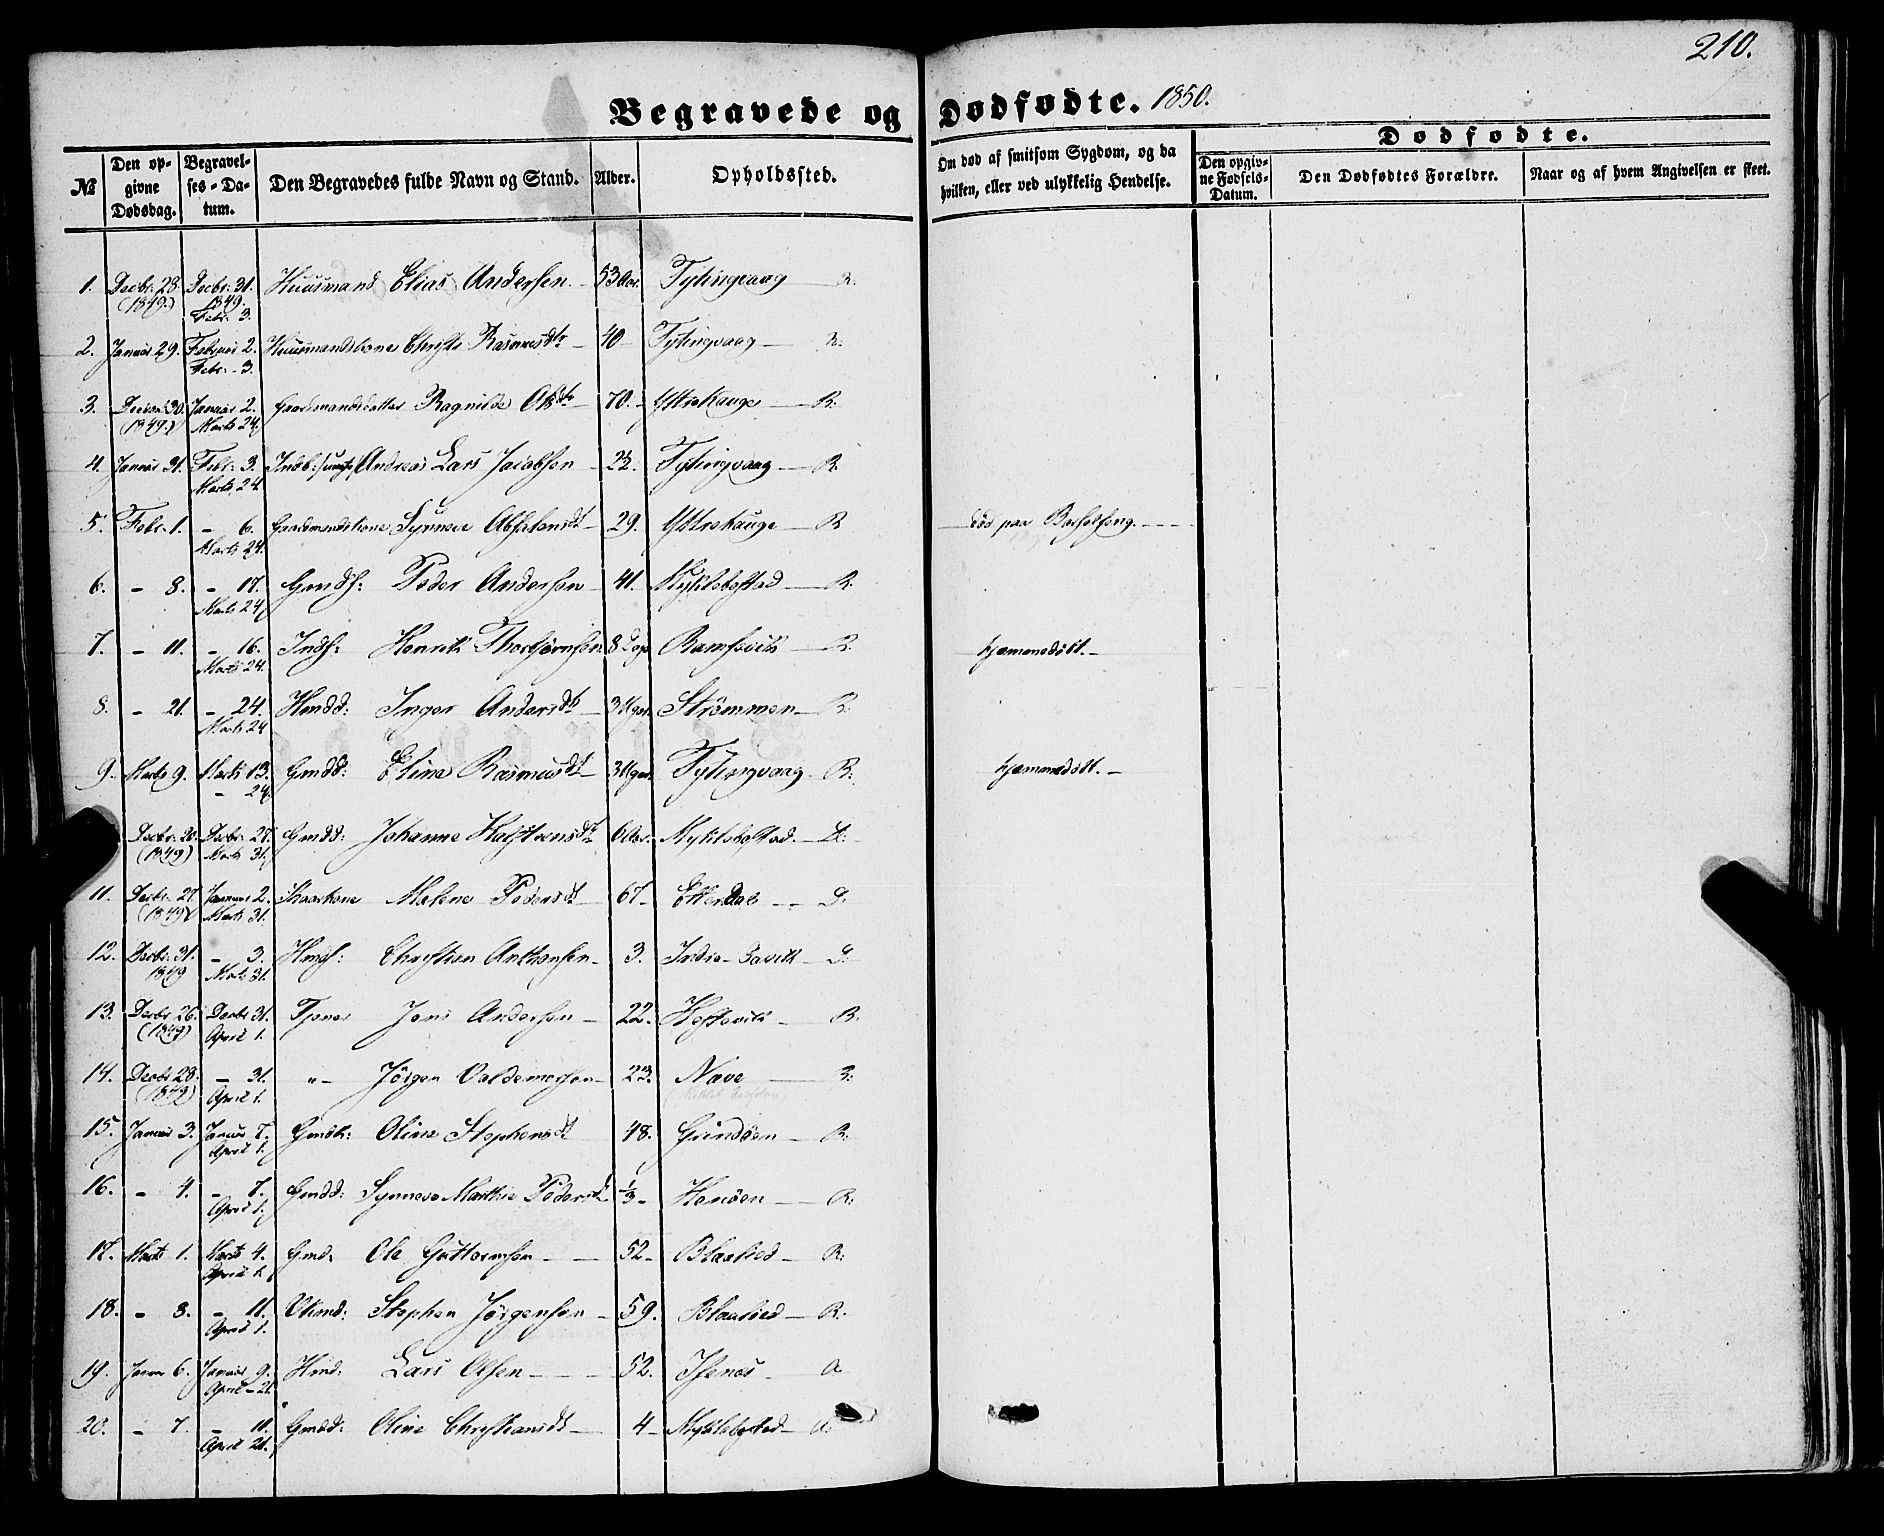 210.
Begravede og Dødfødte. 1850.
Dødfødte.
№
Den opgivne Dødsdag.
Begravelses-Datum.
Den Begravedes fulde Navn og Stand.
Alder.
Opholdssted.
Om død af smitsom Sygdom, og da hvilken, eller ved ulykkelig Hendelse.
Den opgivne Fødsels-Datum.
Den Dødfødtes Forældre.
Naar og af hvem Angivelsen er skeet.
1. Decbr. 28. (1849.) Decbr. 31. 1849. Febr. 3. Huusmand Elias Andersen 53 Aar. Tytingvaag R.
2. Januar 29. Februar 2. Febr. 3. Huusmandskone Christi Rasmusdtr 40 Tytingvaag R.
3. 30. (1849.) Januar 2. Marts 24. Gaardmandsdatter Ragnilde Olsdtr 70. Yttrehauge R.
4. Januar 31. Febr. 3. Marts 24. Andreas Lars Jacobsen 22. Tytingvaag R.
5. Febr. 1. - 6. Marts 24. Gaardmandskone Synneve Absalonsdt 29. Yttrehauge R. død paa Barselseng.
6. - 8. - 17. Marts 24. Gmdss: Peder Andersen 41. Myklebostad R.
7. - 11. - 16. Marts 24. Inds: Henrik Thorbjørnsen 8 Dage Ramsvik R. hjemmedøbt.
8. - 21. - 24. Marts 24 Hmdd: Inger Andersdt 3 Uger. Strømmen R.
9. Marts 9. Marts 13. - 24. Gmdd: Eline Rasmusdt 3 Uger. Tytingvaag R. hjemmedøbt.
Decbr. 20. (1849) Decbr. 27. Marts 31. Gmdd: Johanne Halstensdtr 6 Aar. Myklebostad. D:
11. Decbr. 27. (1849) Januar 2. Marts 31. Malene Pedersdt 67 D:
12. Decbr. 31. 1849 - 3. Marts 31. Hmds: Christian Anthonsen 3. D:
13. Decbr 26. (1849) Decbr. 31. April 1. Tjener Jens Andersen 22. Hestevik R.
14. Decbr 28. (1849) - 31. April 1. „- Jörgen Valdemarsen 23. Nave R:
15. Januar 3. Januar 7. April 1. Gmdk: Oline Stephensdt 48. Grindöen R:
16. - 4. - 7. April 1. Gmdd: Synneve Marthe Pedersdt 1/3 Hendöen R:
17. Marts 1. Marts 4. April 1. Gmd: Ole Guttormsen 52 Blaalied R:
18. - 3. - 11. April 1. Stephen Jörgensen 59. Blaalied R:
19. Januar 6. Januar 9. April - 21. Hmd: Lars Olsen 52. Isenes A
20. - 7. - 11. April 21. Gmdd: Oline Christiansdt 4 Myklebostad A.